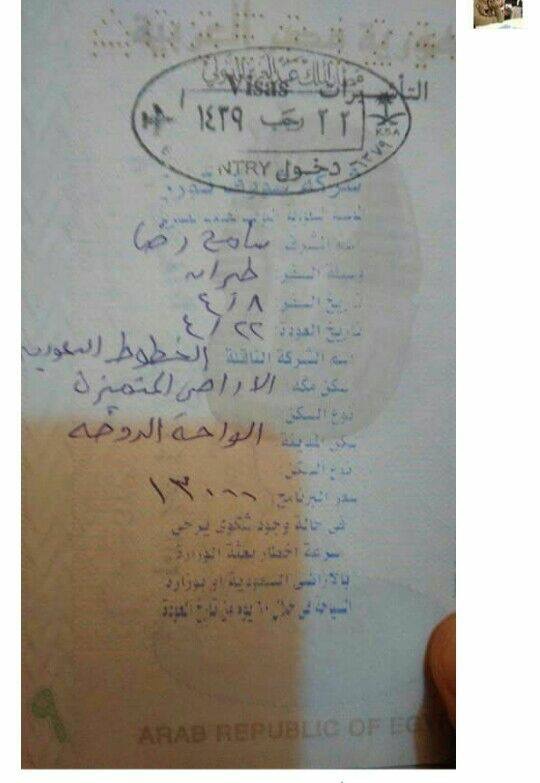 مطار الملك عبدالعزيز الدولي
التأشيرات Visas
٢٢ رجب ١٤٣٩
K.S.A
١٣٧٩
دخول NTRY
شركة
اسم المشرف سامح رضا
وسيلة السفر: طيران
تاريخ السفر: ٨ / ٤
تاريخ العودة: ٢٢ / ٤
اسم الشركة الناقلة الخطوط السعودية
سكن مكة: الاراضى المتميزة
نوع السكن:
سكن المدينة الواحة الدوحة
نوع السكن
سعر البرنامج: ١٣٠٠٠
في حالة وجود شكوى يرجى
سرعة اخطار بعثة الوزارة
بالاراضى السعودية او بوزارة
السياحة فى خلال ٦٠ يوم من تاريخ العودة
٩
ARAB REPUBLIC OF EGY